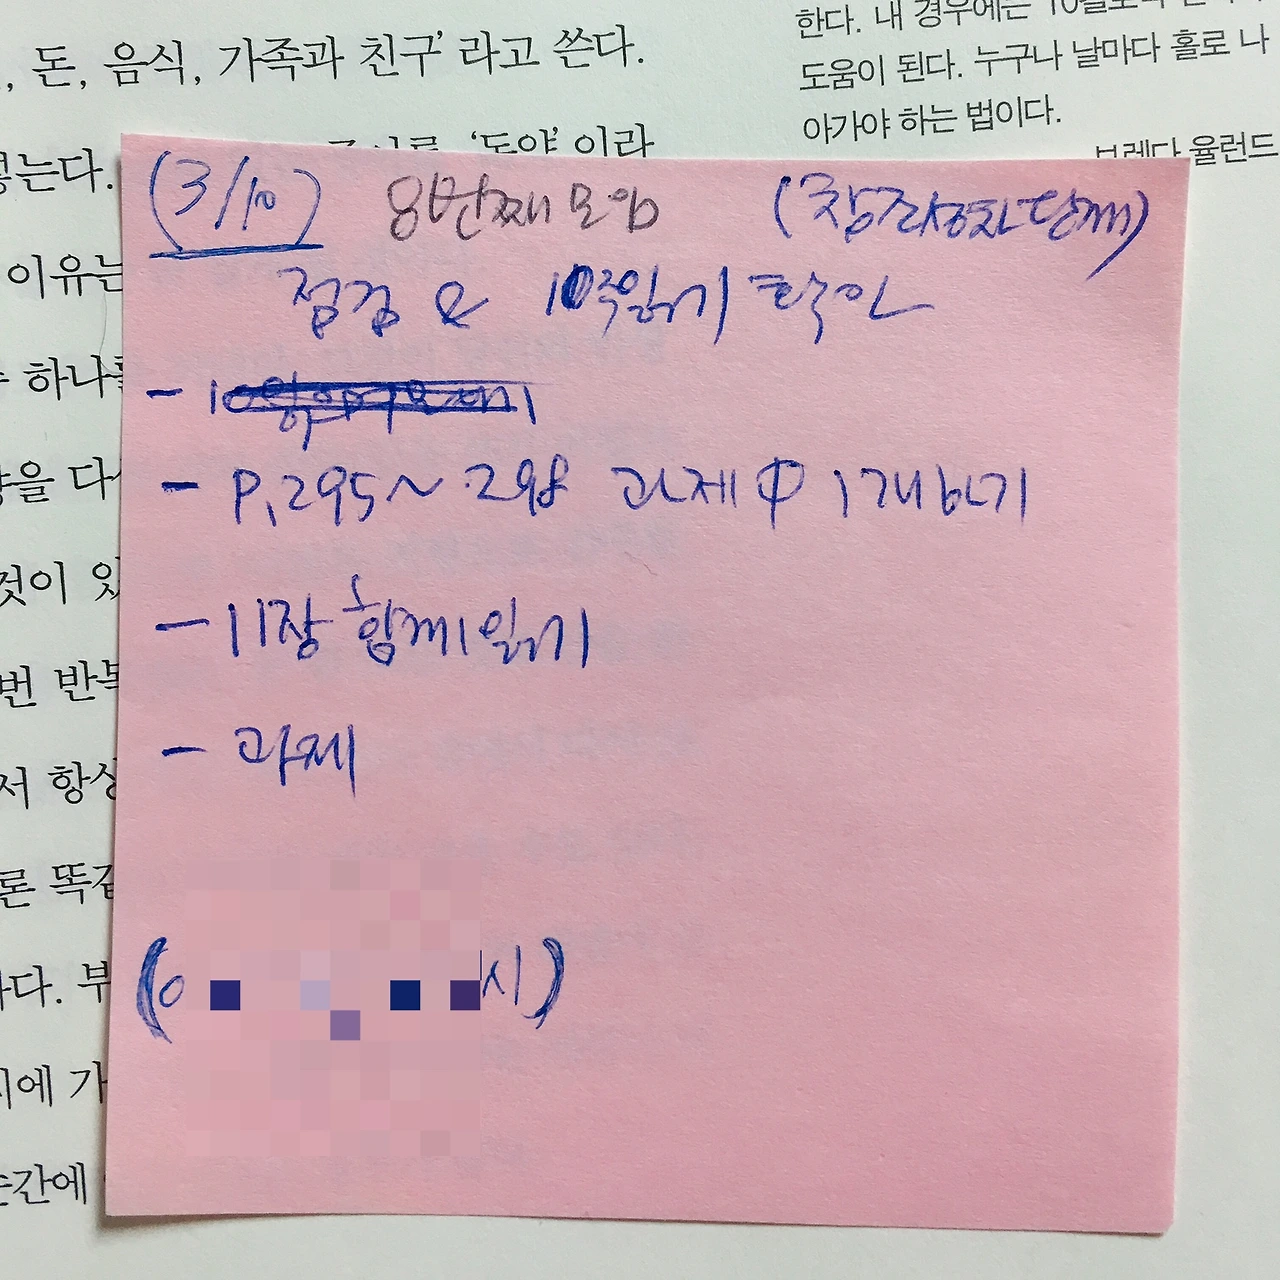 , 돈, 음식, 가족과 친구' 라고 쓴다.
한다. 내 경우에는 10월
도움이 된다. 누구나 날마다 홀로 나
아가야 하는 법이다.
브렌다 율런드
'도약' 이라
넣는다.
이유는
하나를
것이 있
번 반복
서 항상
론 똑같
다. 부
에 가
순간에
(3/10) 8번째 모임 (창조성회복단계)
점검 & 10주읽기 확인
-
- P.295~298 과제 中 1개하기
- 11장 함께 읽기
- 과제
( 시)